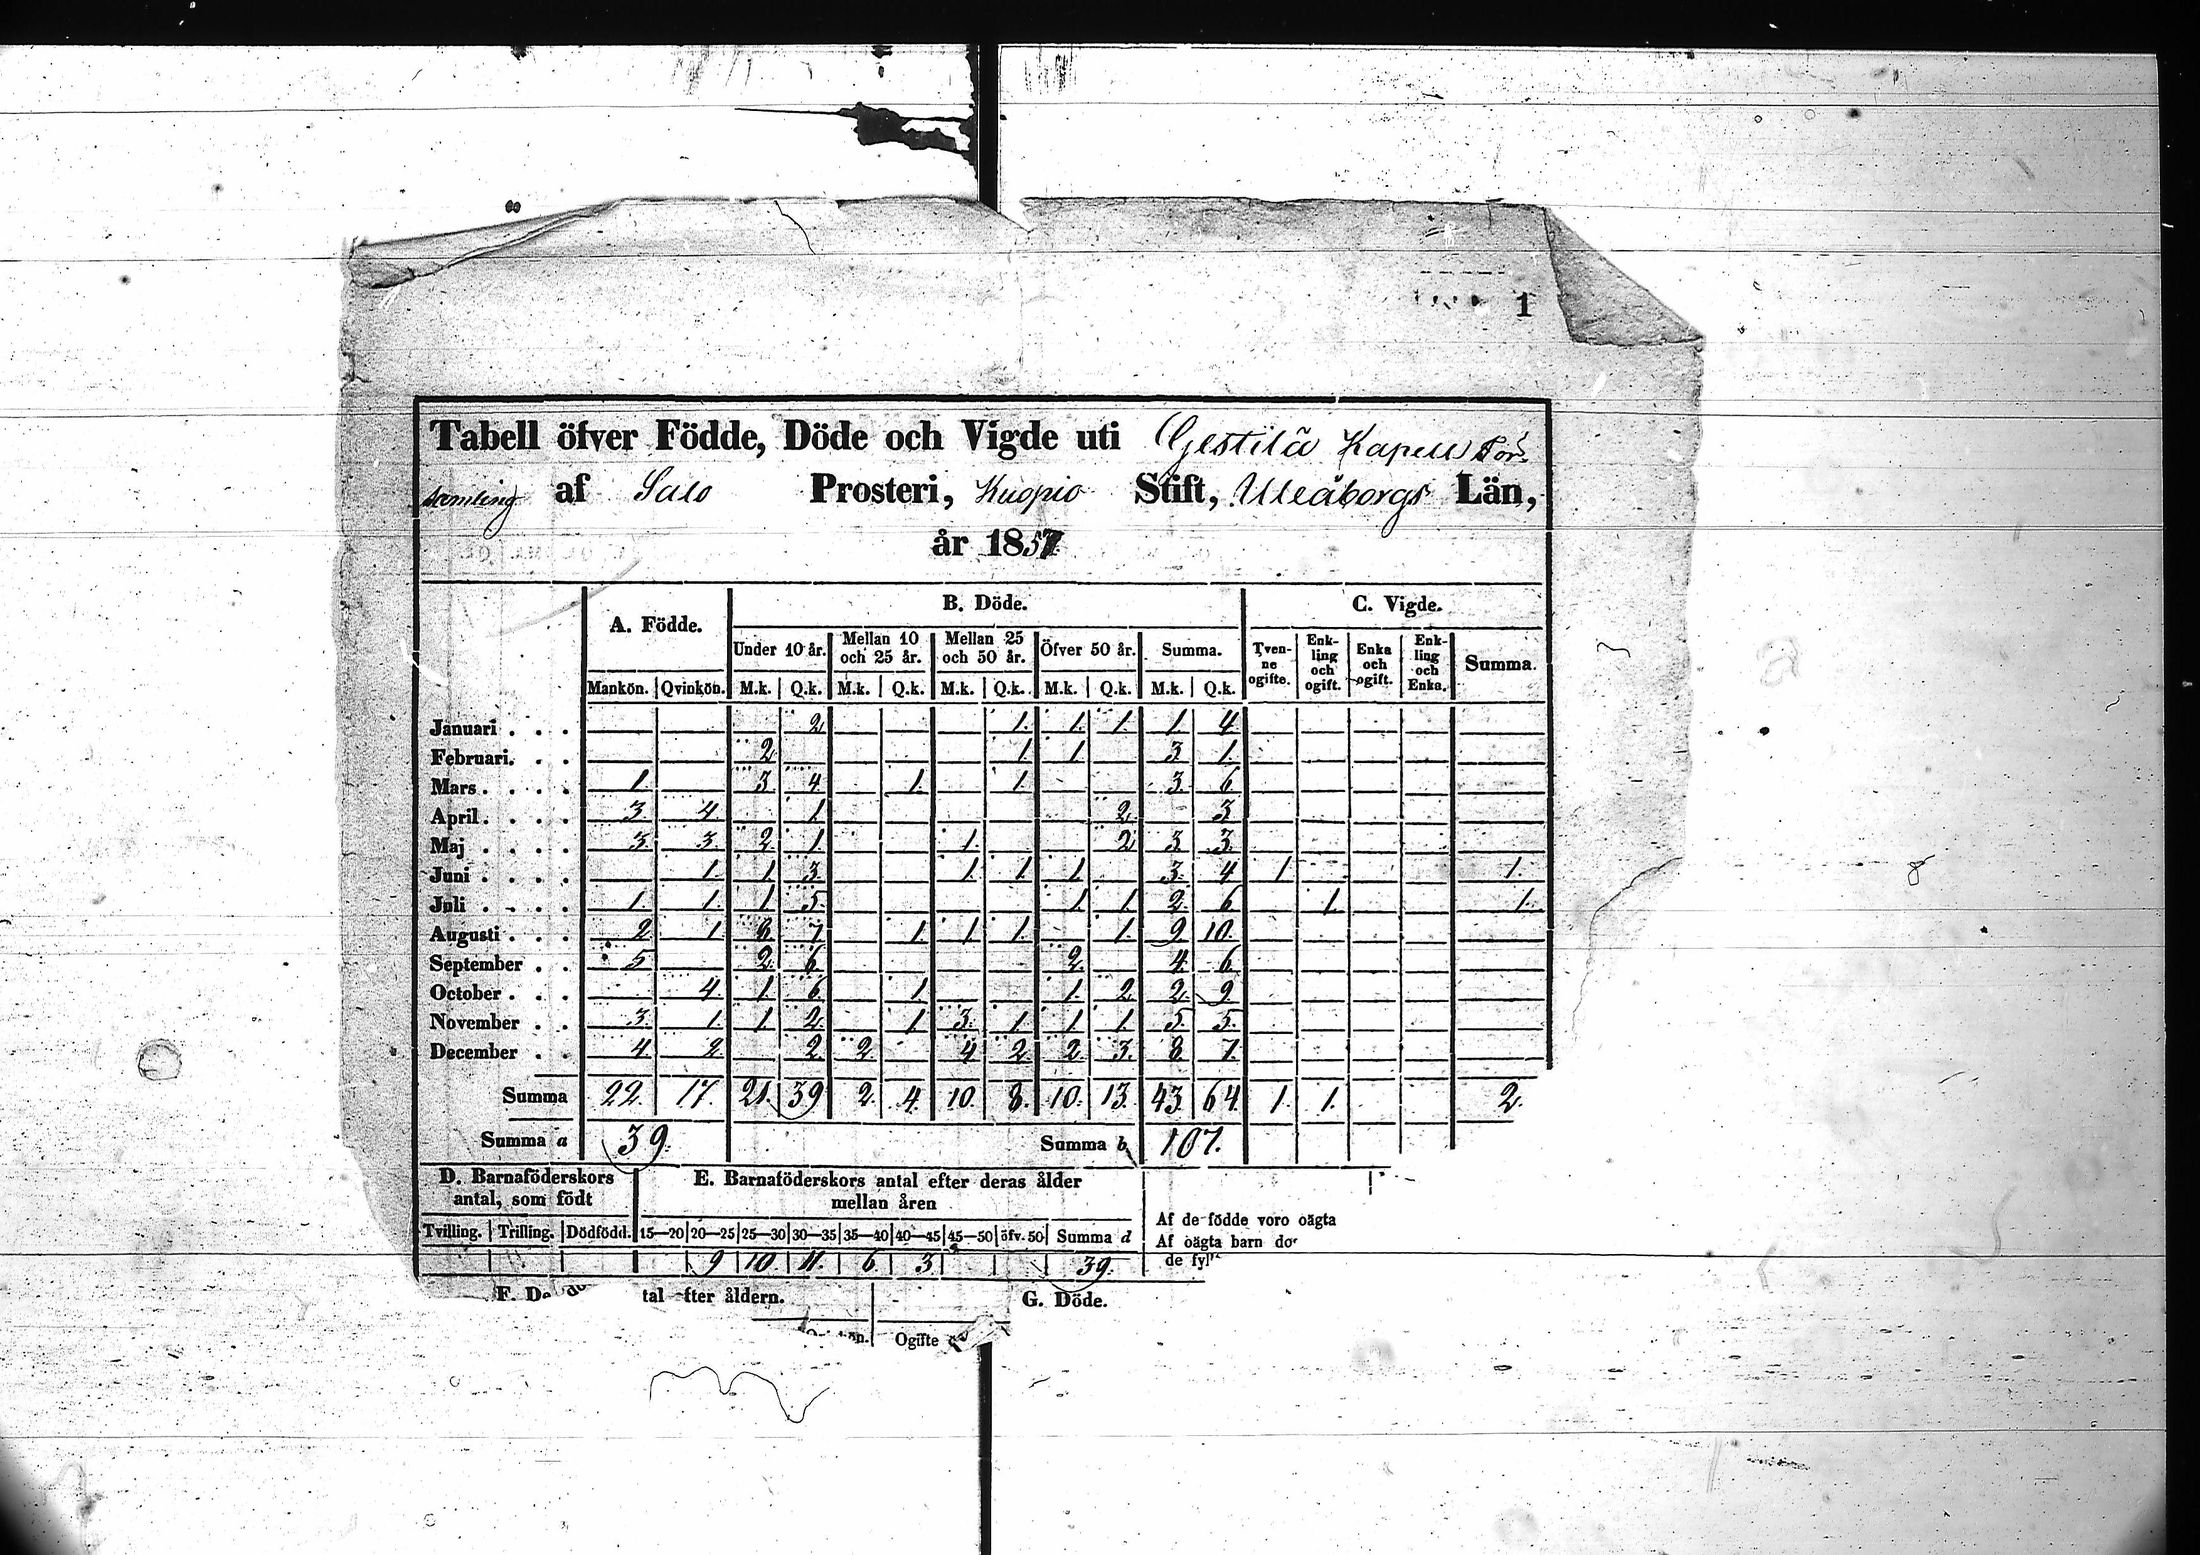 1
Tabell öfver Födde, Döde och Vigde uti Gestilä Kapell För-
samling af Salo Prosteri, Kuopio Stift, Uleåborgs Län,
år 1857.
A. Födde. B. Döde. C. Vigde.
Under 10 år. Mellan 10 och 25 år. Mellan 25 och 50 år. Öfver 50 år. Summa. Tven-ne ogifte. Enk-ling och ogift. Enka och ogift. Enk-ling och Enka. Summa.
Mankön. Qvinkön. M.k. Q.k. M.k. Q.k. M.k. Q.k. M.k. Q.k. M.k. Q.k.
Januari . . . 2 1. 1. 1. 1. 4.
Februari. . . 2 1. 1. 3. 1.
Mars . . . . 1. 3 4. 1. 1. 3. 6.
April . . . . 3 4 1. 2. 3.
Maj . . . . 3. 3. 2. 1. 1. 2 3. 3.
Juni . . . . 1. 1. 3. 1. 1. 1. 3. 4. 1. 1.
Juli . . . . 1. 1. 1. 5. 1. 1. 2. 6. 1. 1.
Augusti . . . 2. 1. 8. 7. 1. 1. 1. 1. 9. 10.
September . . 5. 2. 6. 2. 4. 6.
October . . . 4. 1. 6. 1. 1. 2. 2. 9.
November . . 3. 1. 1. 2. 1. 3. 1. 1. 1. 5. 5.
December . . 4. 2. 2. 2. 4. 2. 2. 3. 8. 7.
Summa 22. 17. 21. 39 2. 4. 10. 8. 10. 13. 43. 64. 1. 1. 2.
Summa a 39. Summa b 107.
D. Barnaföderskors antal, som födt E. Barnaföderskors antal efter deras ålder mellan åren
Tvilling. Trilling. Dödfödd. 15—20 20—25 25—30 30—35 35—40 40—45 45—50 öfv. 50 Summa d
Af de födde voro oägta
Af oägta barn do
de fyl
9 10 11. 6. 3. 39.
F. De tal efter åldern. G. Döde.
Ogifte